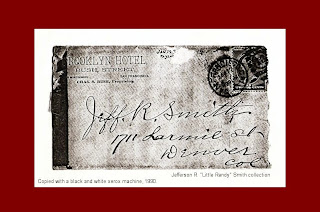 BROOKLYN HOTEL
BUSH STREET,
SAN FRANCISCO.
Jeff. R. Smith
1711 Larmie st
Denver
Col
Jefferson R. "Little Randy" Smith collection
Copied with a black and white xerox machine, 1990